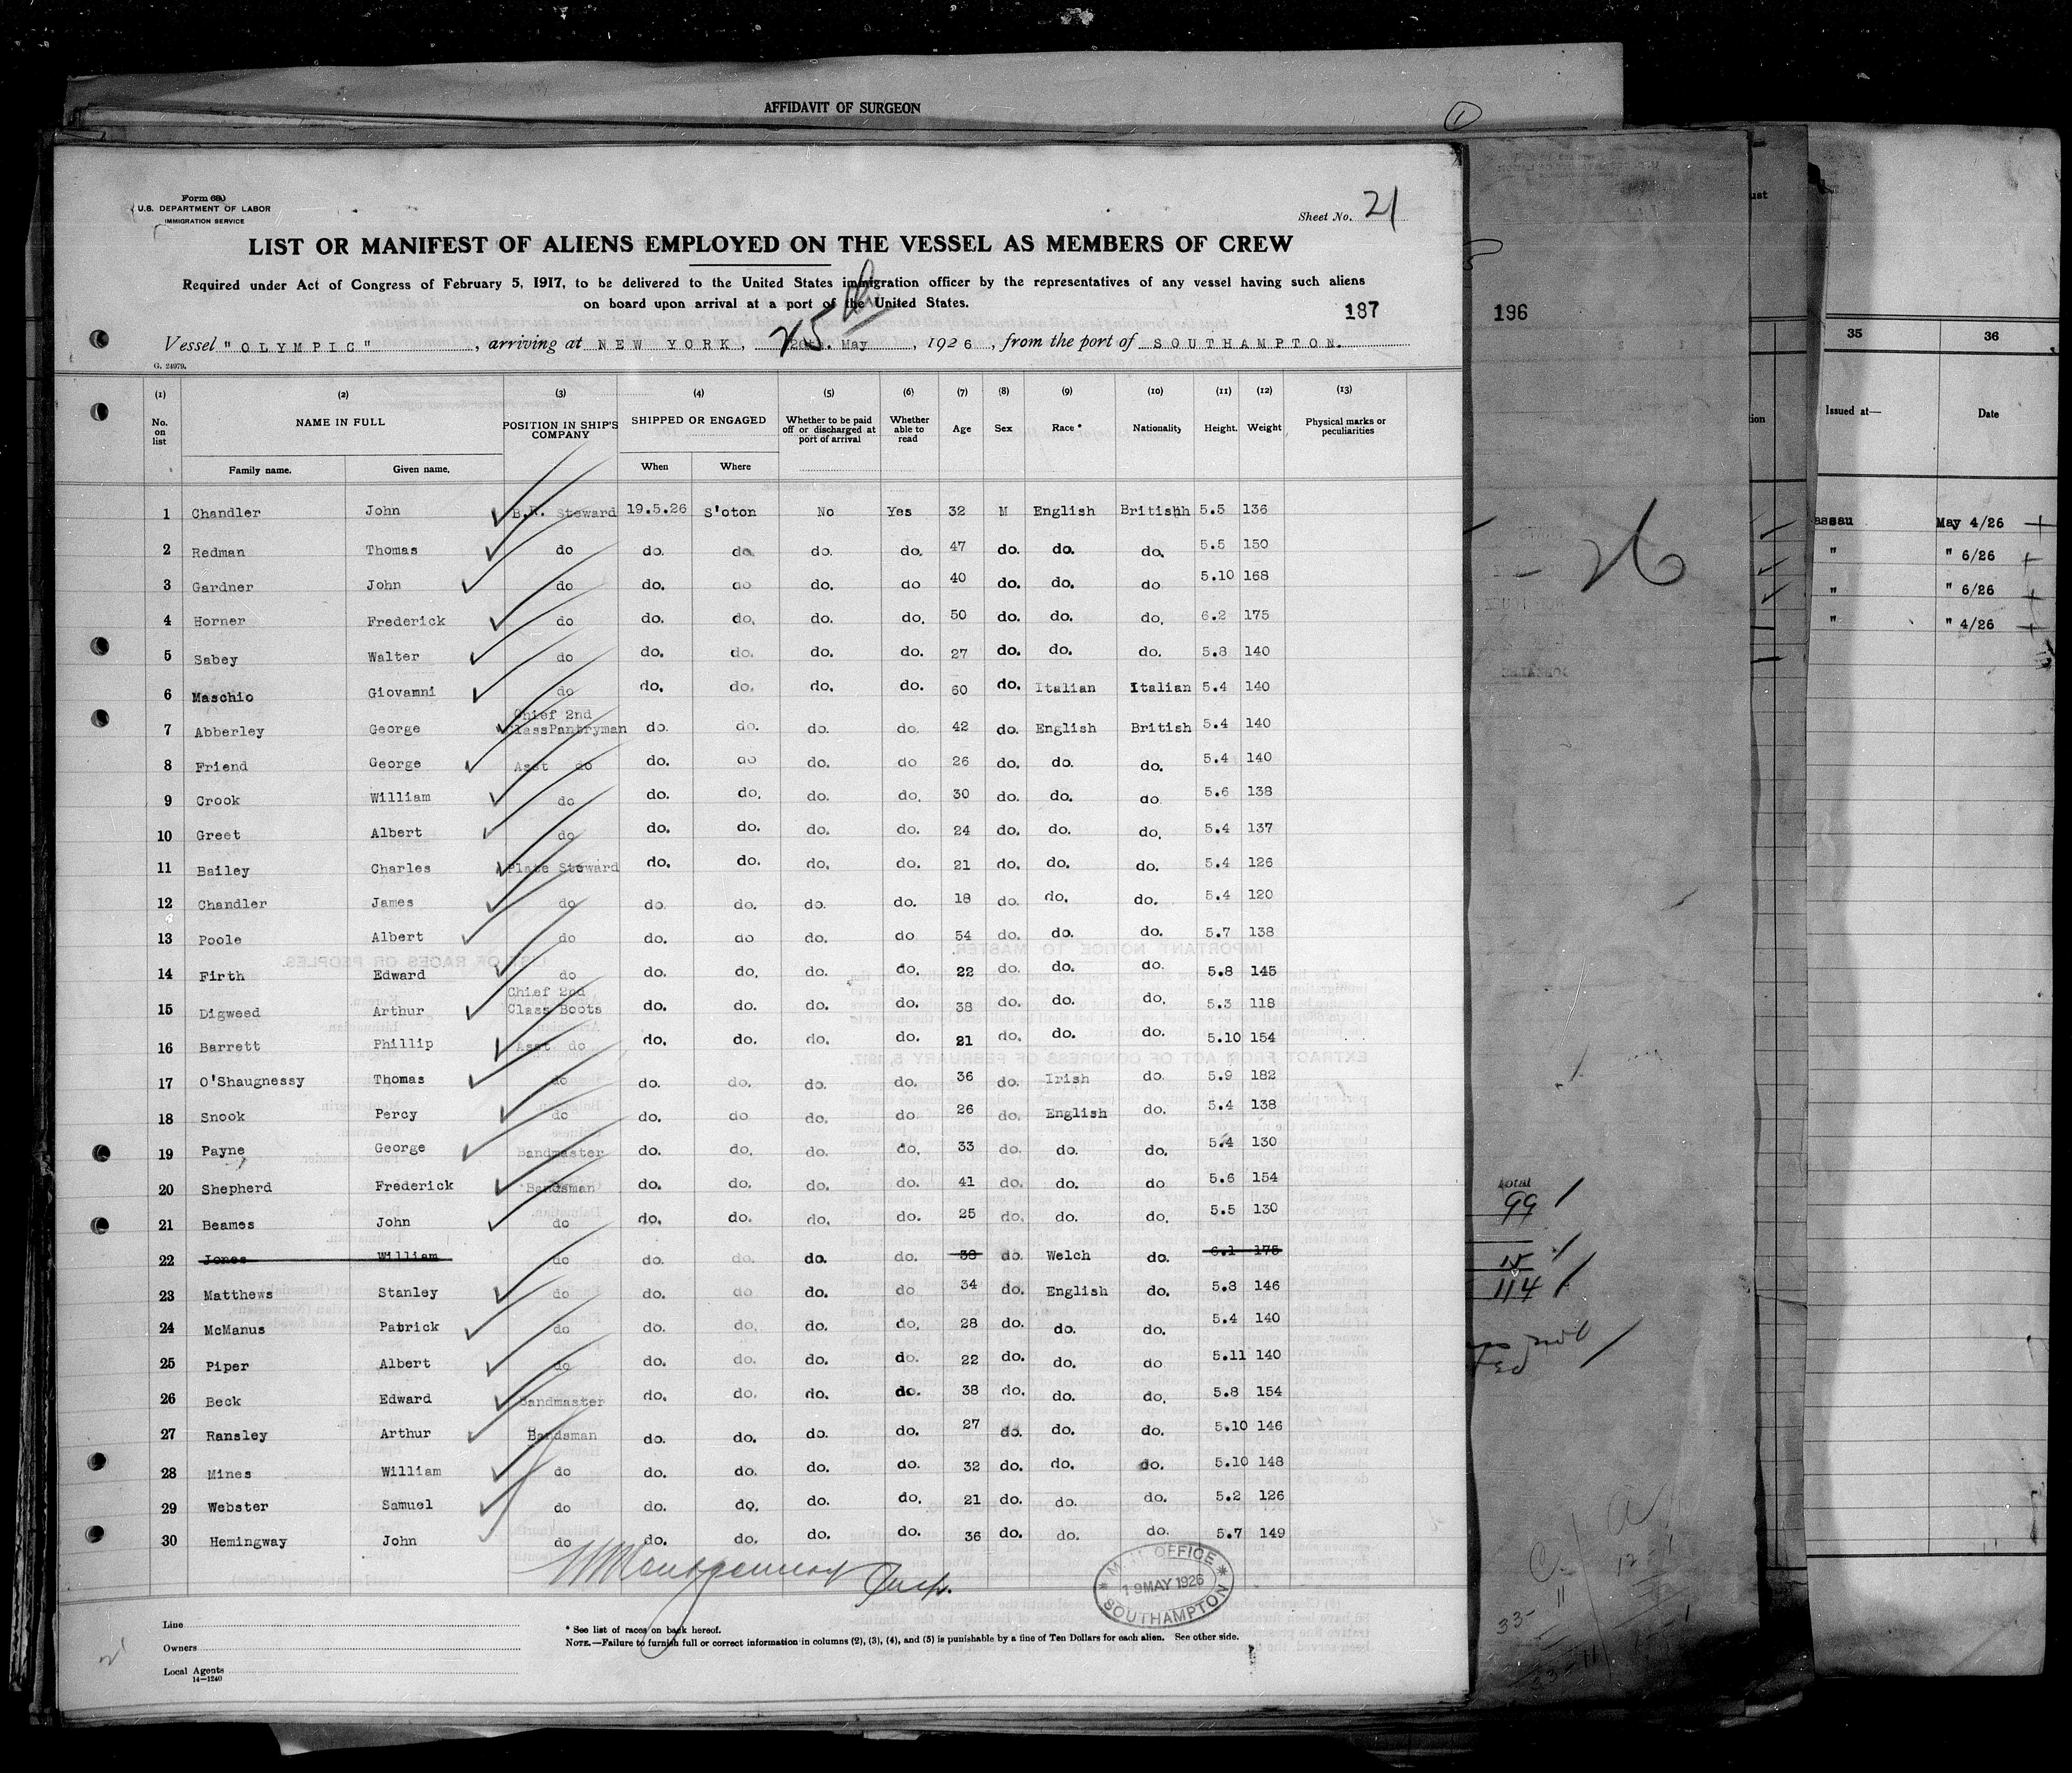 AFFIDAVIT OF SURGEON
1
Form 680
U.S. DEPARTMENT OF LABOR
IMMIGRATION SERVICE
Sheet No. 21
LIST OR MANIFEST OF ALIENS EMPLOYED ON THE VESSEL AS MEMBERS OF CREW
Required under Act of Congress of February 5, 1917, to be delivered to the United States immigration officer by the representatives of any vessel having such aliens
on board upon arrival at a port of the United States.
187
25th
Vessel "OLYMPIC", arriving at NEW YORK, May, 1926, from the port of SOUTHAMPTON.
G. 24979.
(1) (2) (3) (4) (5) (6) (7) (8) (9) (10) (11) (12) (13)
No. on list NAME IN FULL POSITION IN SHIP'S COMPANY SHIPPED OR ENGAGED Whether to be paid off or discharged at port of arrival Whether able to read Age Sex Race* Nationality Height. Weight Physical marks or peculiarities
Family name. Given name. When Where
1 Chandler John B.R. Steward 19.5.26 S'oton No Yes 32 M English Britishh 5.5 136
2 Redman Thomas do do. do. do. do. 47 do. do. do. 5.5 150
3 Gardner John do do. do do. do 40 do. do. do 5.10 168
4 Horner Frederick do do. do. do. do. 50 do. do. do. 6.2 175
5 Sabey Walter do do. do. do. do. 27 do. do. do. 5.8 140
6 Maschio Giovanni do do. do. do. do. 60 do. Italian Italian 5.4 140
7 Abberley George Chief 2nd ClassPantryman do. do. do. do. 42 do. English British 5.4 140
8 Friend George Asst do do. do do. do 26 do. do. do. 5.4 140
9 Crook William do do. do. do. do. 30 do. do. do 5.6 138
10 Greet Albert do do. do. do. do. 24 do. do. do. 5.4 137
11 Bailey Charles Plate Steward do. do. do. do. 21 do. do. do. 5.4 126
12 Chandler James do do. do. do. do. 18 do. do. do. 5.4 120
13 Poole Albert do do. do do. do 54 do. do. do. 5.7 138
14 Firth Edward do do. do. do. do. 22 do. do. do. 5.8 145
15 Digweed Arthur Chief 2nd Class Boots do. do. do. do. 38 do. do. do. 5.3 118
16 Barrett Phillip Asst do do. do. do. do. 21 do. do. do. 5.10 154
17 O'Shaugnessy Thomas do do. do. do. do. 36 do. Irish do. 5.9 182
18 Snook Percy do do. do do. do 26 do. English do. 5.4 138
19 Payne George Bandmaster do. do. do. do. 33 do. do. do. 5.4 130
20 Shepherd Frederick Bandsman do. do. do. do. 41 do. do. do 5.6 154
21 Beames John do do. do. do. do. 25 do. do. do. 5.5 130
22 Jones William do do. do. do. do. 38 do. Welch do. 6.1 175
23 Matthews Stanley do do. do do. do 34 do. English do. 5.8 146
24 McManus Patrick do do. do. do. do. 28 do. do. do. 5.4 140
25 Piper Albert do do. do. do. do. 22 do. do. do 5.11 140
26 Beck Edward Bandmaster do. do. do. do. 38 do. do. do. 5.8 154
27 Ransley Arthur Bandsman do. do. do. do. 27 do. do. do. 5.10 146
28 Mines William do do. do. do. do. 32 do. do. do. 5.10 148
29 Webster Samuel do do. do. do. do. 21 do. do. do. 5.2 126
30 Hemingway John do do. do. do. do. 36 do. do. do. 5.7 149
OFFICE
19 MAY 1926
SOUTHAMPTON
Line
Owners
Local Agents
14-1240
* See list of races on back hereof.
NOTE.—Failure to furnish full or correct information in columns (2), (3), (4), and (5) is punishable by a fine of Ten Dollars for each alien. See other side.
196
26
total
99
15
114
35 36
Issued at— Date
assau May 4/26
" " 6/26
" " 6/26
" " 4/26